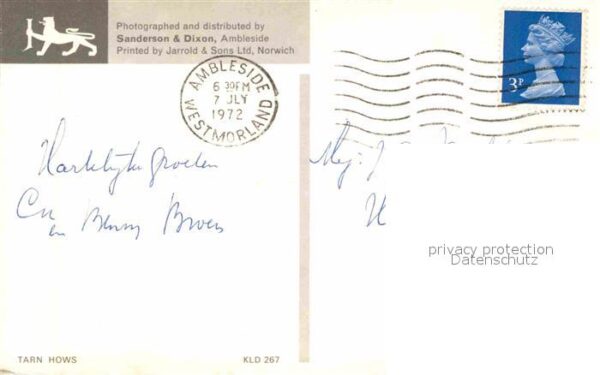 Photographed and distributed by
Sanderson & Dixon, Ambleside
Printed by Jarrold & Sons Ltd, Norwich
AMBLESIDE
6 30PM
7 JLY
1972
WESTMORLAND
3P
Hartelijke groeten
en Benny
Mej:
privacy protection
Datenschutz
TARN HOWS
KLD 267